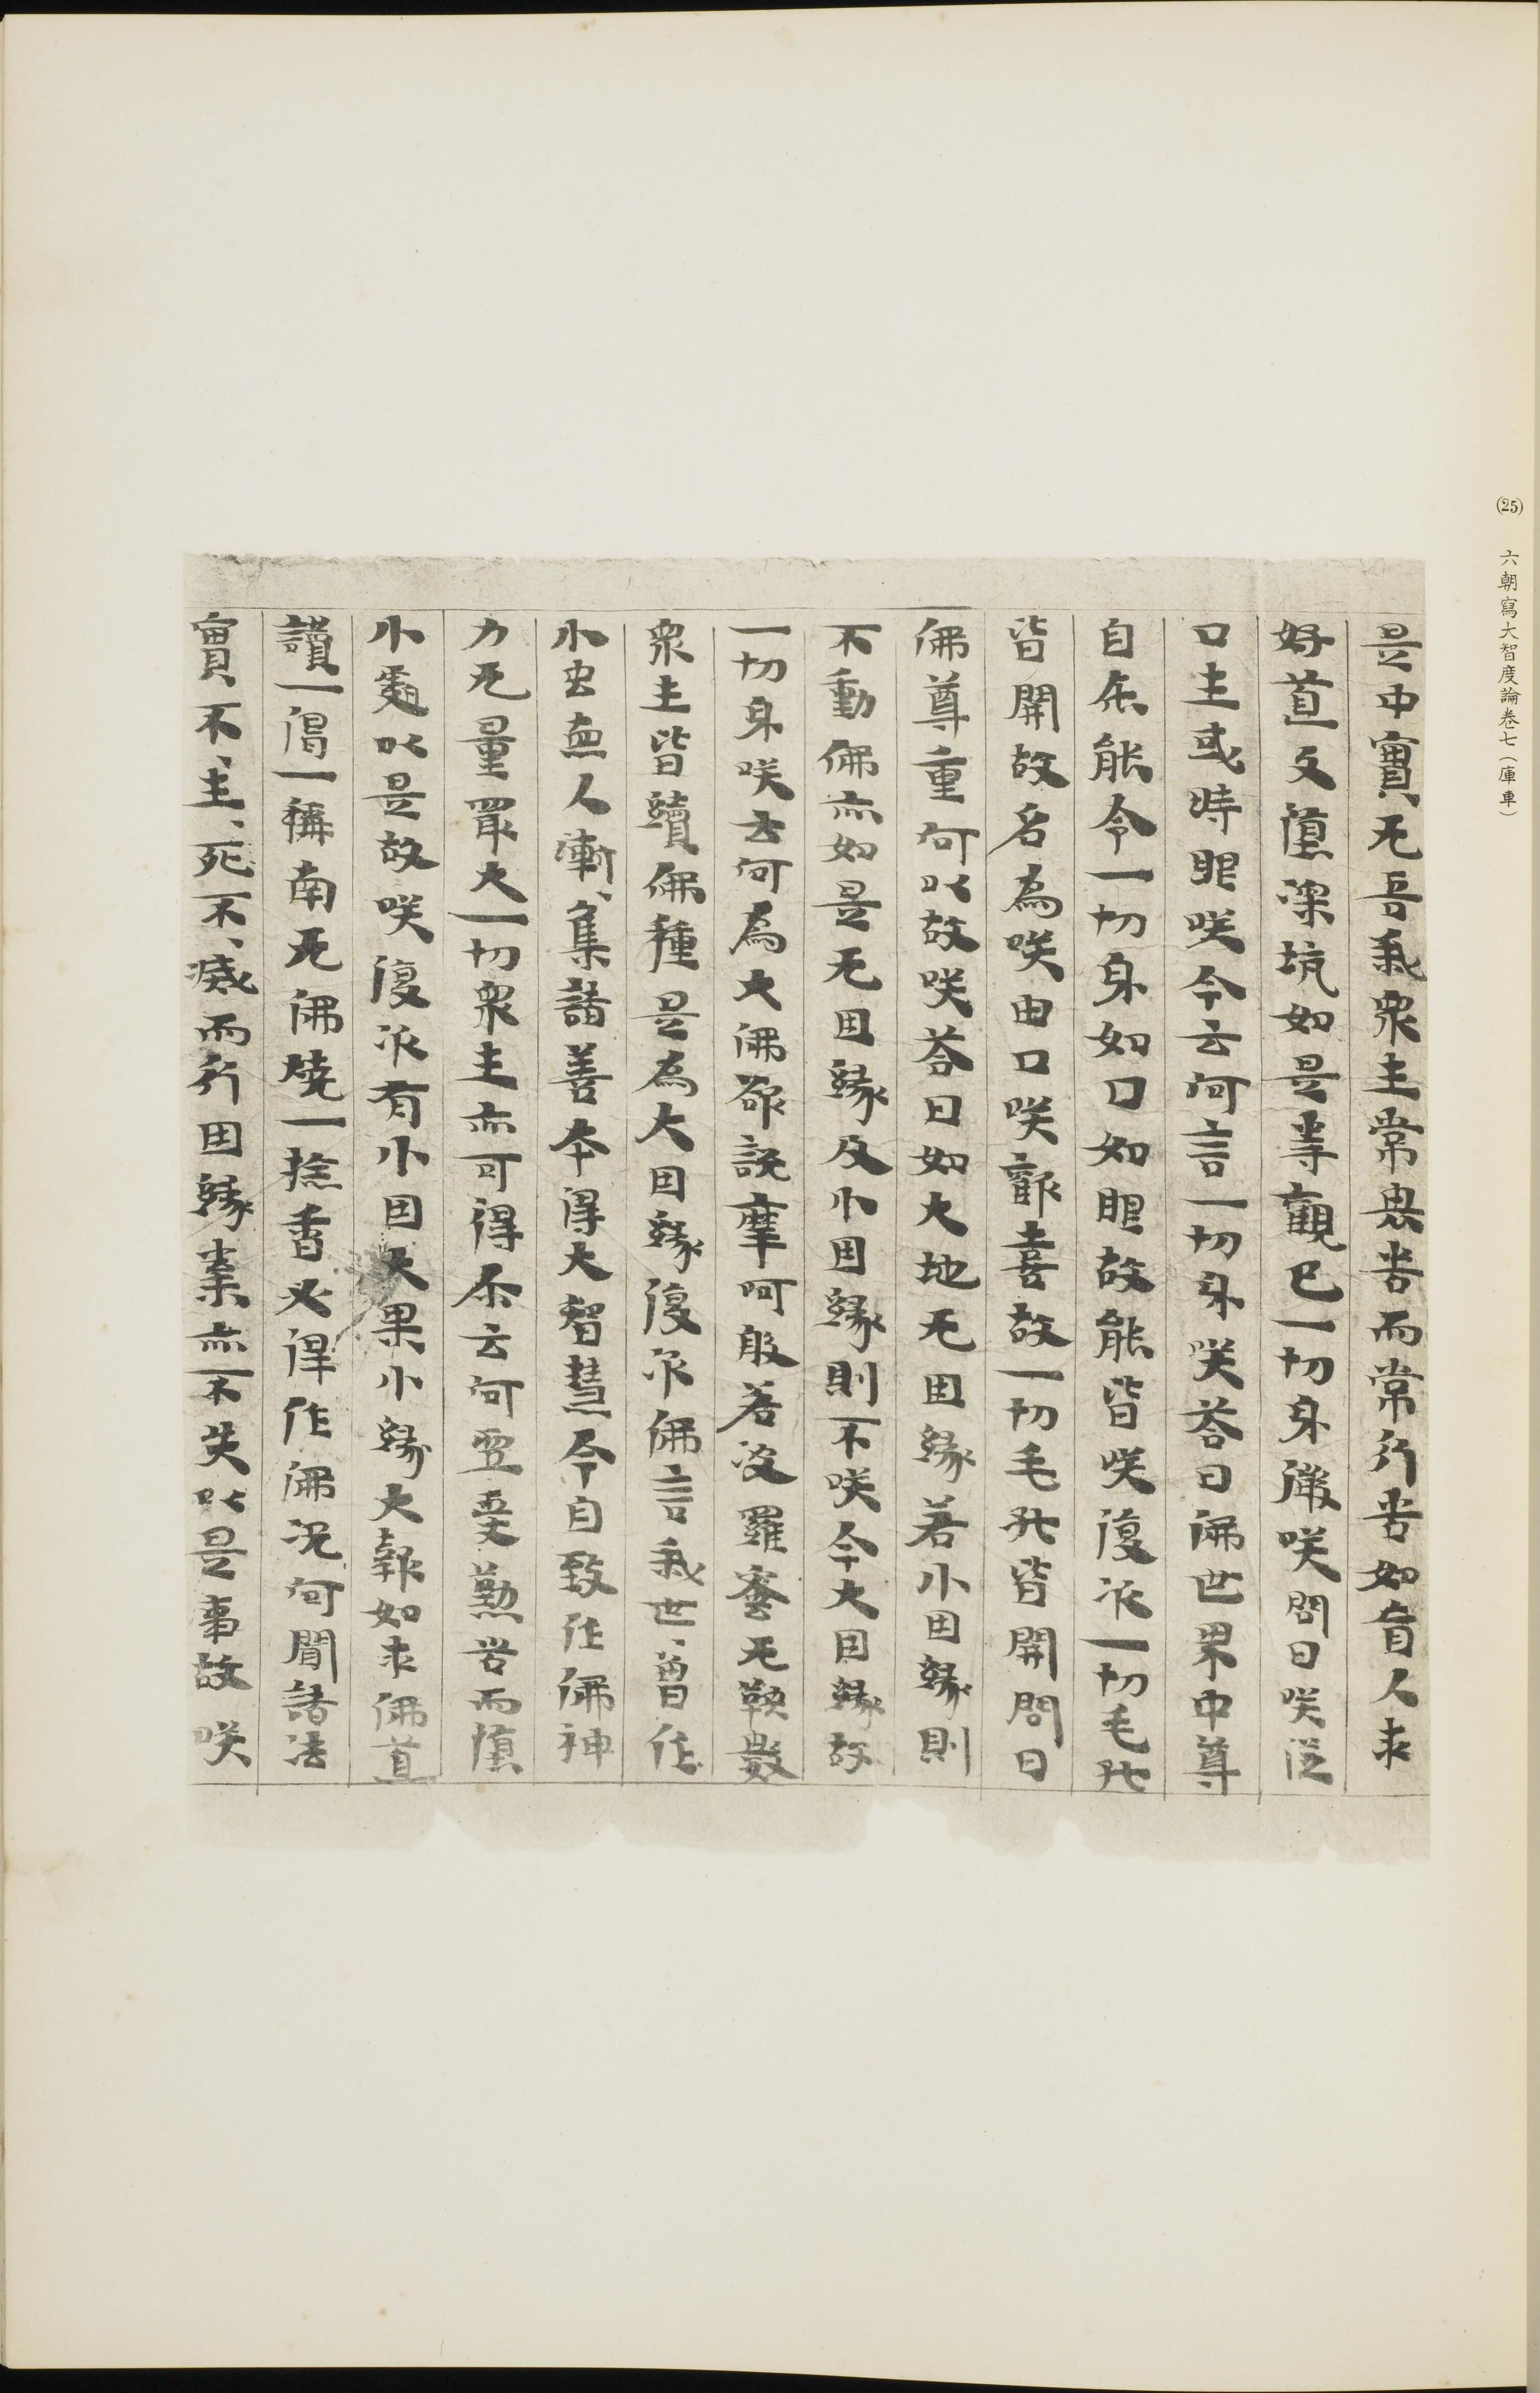 (25) 六朝寫大智度論卷七（庫車）
是中實无吾我衆生常畏苦而常行苦如盲人求
好道反墮深坑如是等觀已一切身微咲問曰咲從
口生或時眼咲今云何言一切身咲荅曰佛世界中尊
自在能令一切身如口如眼故能皆咲復次一切毛孔
皆開故名為咲由口咲歡喜故一切毛孔皆開問曰
佛尊重何以故咲荅曰如大地无因緣若小因緣則
不動佛亦如是无因緣及小因緣則不咲今大因緣故
一切身咲云何為大佛欲說摩呵般若波羅蜜无鞅數
衆生皆續佛種是為大因緣復次佛言我世〻曾作
小虫惡人漸〻集諸善本得大智慧今自致作佛神
力无量冣大一切衆生亦可得尒云何空受勤苦而墮
小處以是故咲復次有小因大果小緣大報如求佛道
讚一偈一稱南无佛燒一捻香必得作佛況何聞諸法
實〻不〻生〻死不〻滅而行因緣業亦不失以是事故咲